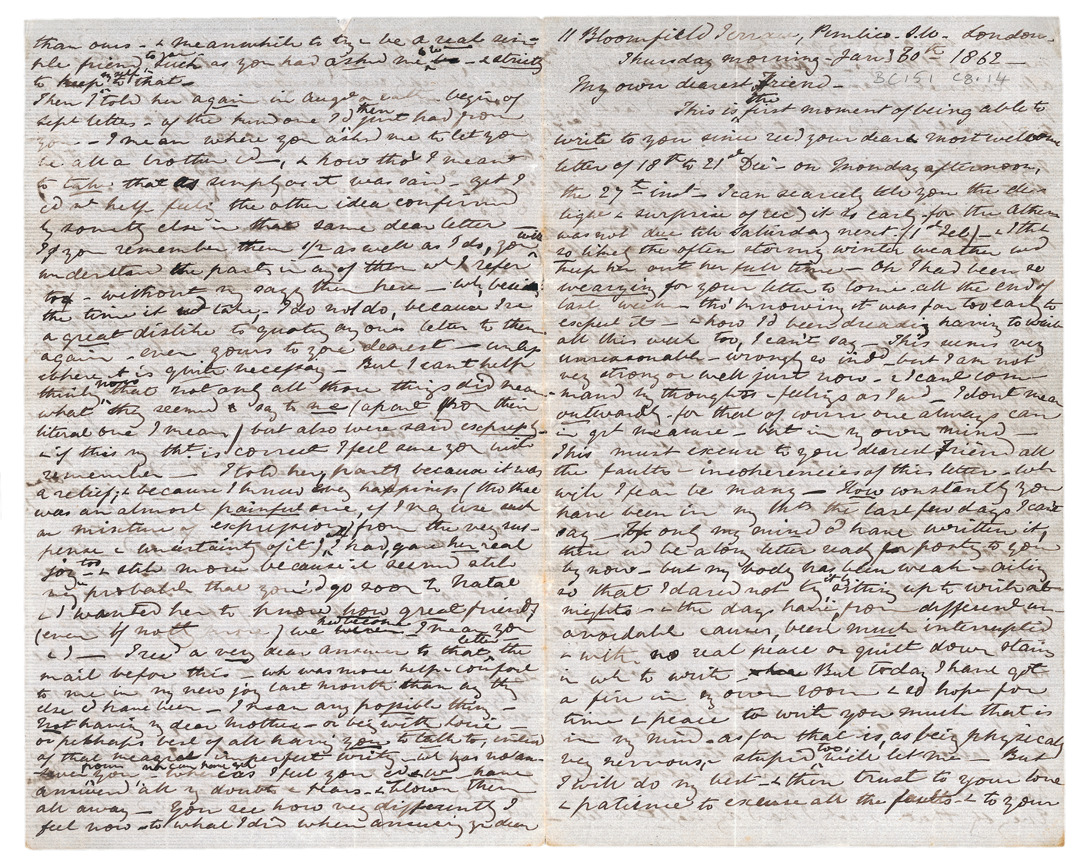 11 Bloomfield Terrace, Pimlico. S.W. London.
Thursday morning - Jan 30th 1862.
BC 151 C8:14
My own dearest Friend -
This is the first moment of being able to
write to you since recd your dear & most welcome
letter of 18th to 21st Dec - on Monday afternoon,
the 27th inst - I can scarcely tell you the de-
light & surprise of recg it so early, for the Athen
was not due till Saturday next (1st Feb) - & I tht
so likely the often stormy winter weather wd
keep her out her full time - Oh I had been so
wearying for your letter to come all the end of
last week - tho' knowing it was far too early to
expect it - & how I'd been dreading having to wait
all this week too, I can't say - This seems very
unreasonable - wrongly so indd but I am not
very strong or well just now - & I cant com-
mand my thoughts & feelings as I wd - I don't mean
outwardly - for that of course one always can
in grt measure - but in my own mind -
This must excuse to you dearest Friend all
the faults & incoherencies of this letter - wh
will I fear be many - How constantly you
have been in my thts the last few days I can't
say - If only my mind cd have written it,
there wd be a long letter ready for posting to you
by now - but my body has been weak & ailing
so that I dared not try sitting up to write at
nights - & the days have, from different un-
avoidable causes, been much interrupted
& with no real peace or quiet down stairs
in wh to write But today I have got
a fire in my own room & so hope for
time & peace to write you much that is
in my mind - as far that is, as being physically
very nervous, & stupid too, will let me - But
I will do my best - & then trust to your love
& patience to excuse all the faults - & to your
than ours - & meanwhile to try & be a real sim-
ple friend to you, such as you had asked me to be - & strictly
to keep myself to that -
Then I told her again in august - early begg of
sept letter - of the kind one I'd then just had from
you - I mean where you asked me to let you
be all a brother cd, & how tho' I meant
to take that simply as it was said - yet I
cdn't help feelg the other idea confirmed
by somethg else in that same dear letter
If you remember them 1/2 as well as I do, you will
understand the parts in any of them wh I refer
to - without my sayg them here - wh, besides
the time it wd take - I do not do, because I've
a great dislike to quotg anyone's letter to them
again - even yours to you dearest - unless
where it is quite necessary - But I can't help
thinkg now that not only all those things did mean
what they seemed to say to me (apart from their
literal one I mean) but also were said expressly
& if this my tht is correct I feel sure you will
remember - I told her, partly because it was
a relief; & because I knew my happiness (tho that
was an almost painful one, if I may use such
a mixture of expression, from the very sus-
pense & uncertainty of it), I had, gave her real
joy too - & still more because it seemed still
probable that you'd go soon to Natal
& I wanted her to know how great friends
(even if noth more) we had become - I mean you
& I - I recd a very dear answer to that letter, the
mail before this - wh was more help & comfort
to me in my new joy last month than any thg
else I have been - I mean any possible thing -
Not having my dear mother - or beg with Louie -
or perhaps best of all having you to talk to, instead
of that meagre & imperfect writg - wh has no an-
from you, whereas I feel you cd & wd have
answerd all my doubts & fears & blown them
all away - You see how very differently I
feel now - to what I did when answerg yr dear